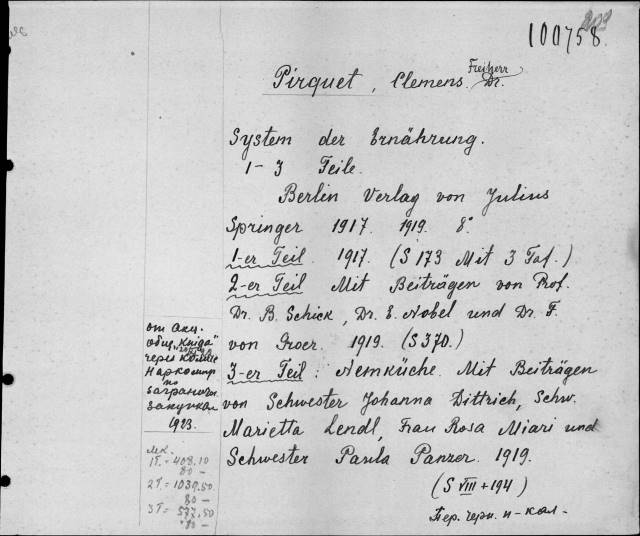 100758
Freiherr
Pirquet, Clemens. Dr.
System der Ernährung.
1-3 Teile.
Berlin Verlag von Julius
Springer 1917. 1919. 8°.
1-er Teil. 1917. (S 173 Mit 3 Taf.)
2-er Teil Mit Beiträgen von Prof.
Dr. B. Schick, Dr. E. Nobel und Dr. F.
von Groer. 1919. (S 370.)
3-er Teil: Nemküche. Mit Beiträgen
von Schwester Johanna Dittrich, Schw.
Marietta Lendl, Frau Rosa Miari und
Schwester Paula Panzer. 1919.
(S VIII + 194)
Пер. черн. н-кол-
от акц.
общ. "Книга"
через
Наркомпр
по
заграничн.
закупкам
1923.
1T. = 408.10
80 -
2T. = 1039.50
80 -
3T. = 587.50
80 -